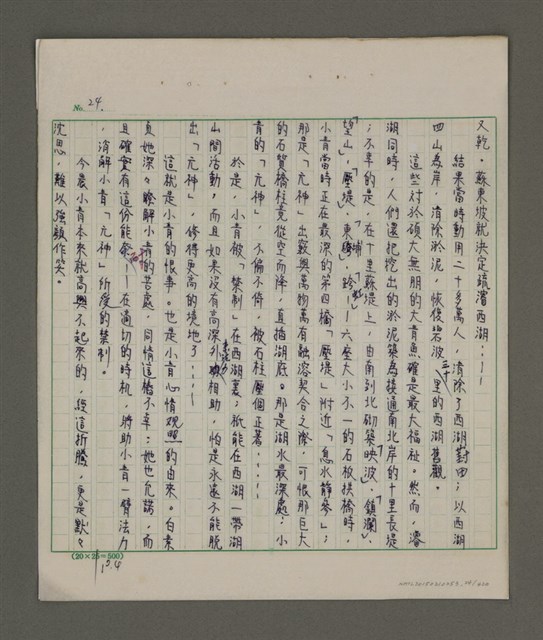 No. 24.
又乾。蘇東坡就決定疏濬西湖……
結果當時動用二十多萬人，清除了西湖葑田；以西湖
四山為岸，清除淤泥，恢復碧波三十里的西湖舊觀。
這些對於碩大無朋的大青魚確是最大福祉。然而，濬
湖同時，人們還把挖出的淤泥築為接通南北岸的十里長堤
；不幸的是，在十里蘇堤上，由南到北砌築「映波」、「鎖瀾」、
「望山」、「壓堤」、「東浦」、「跨虹」——六座大小不一的石板拱橋時，
小青當時正在最深的第四橋「壓堤」附近「息水靜參」；
那是「元神」出竅與萬物萬有融溶契合之際，可恨那巨大
的石質橋柱竟從空而降，直插湖底。那是湖水最深處；小
青的「元神」，不偏不倚，被石柱壓個正著……
於是，小青被「禁制」在西湖裏，祇能在西湖一帶湖
山間活動，而且如果沒有高深外來法力相助，怕是永遠不能脫
出「元神」，修得更高的境地了……
這就是小青的恨事。也是小青心情觀照的由來。白素
貞她深深瞭解小青的苦處，同情這樁不幸；她也允諾，而
且確實有這份能耐——在適切的時机，將助小青一臂法力
，消解小青「元神」所受的禁制。
今晨小青本來就高興不起來的，經這折騰，更是默默
沈思，難以強顏作笑。
(20×25=500)
154